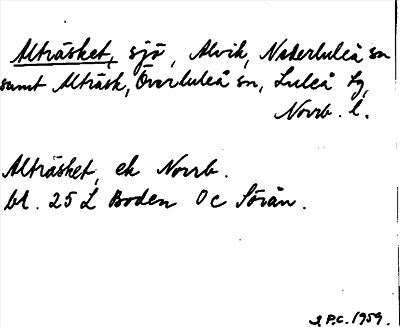 Alträsket, sjö, Alvik, Nederluleå sn
samt Alträsk, Överluleå sn, Luleå tg,
Norrb. l.
Alträsket, ek Norrb.
bl. 25 L Boden 0c Sörån.
J.P.C. 1959.